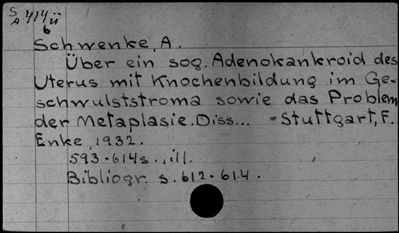 S/A 414ü
6
Schwenke, A.
Über ein sog. Adenokankroid des
Uterus mit Knochenbildung im Ge-
schwulststroma sowie das Problem
der Metaplasie. Diss... - Stuttgart, F.
Enke, 1932.
593-614s., ill.
Bibliogr. s. 612-614.